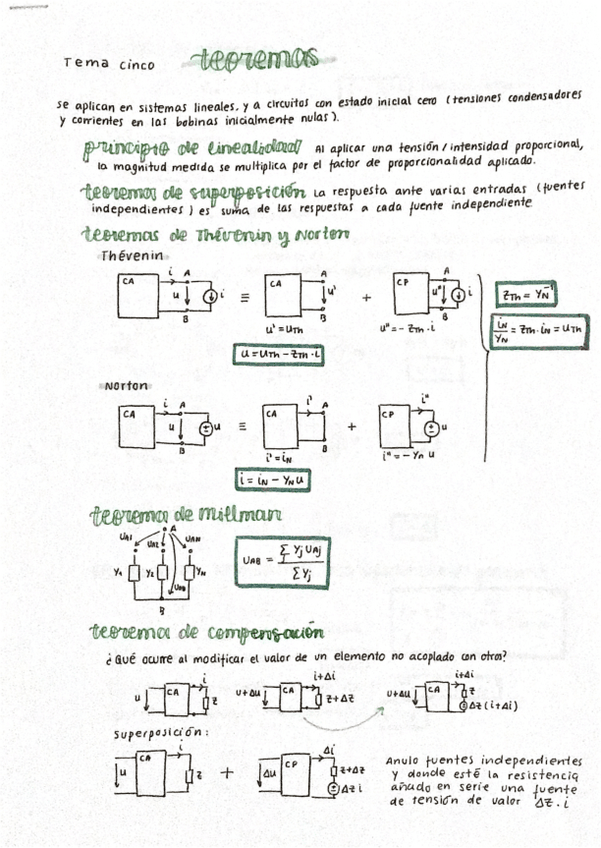 Tema cinco teoremas
se aplican en sistemas lineales, y a circuitos con estado inicial cero (tensiones condensadores
y corrientes en las bobinas inicialmente nulas).
principio de linealidad Al aplicar una tensión/intensidad proporcional,
la magnitud medida se multiplica por el factor de proporcionalidad aplicado.
teorema de superposición La respuesta ante varias entradas (fuentes
independientes) es suma de las respuestas a cada fuente independiente
teoremas de Thévenin y Norton
Thévenin
CA i A u B i ≡ CA A u' B + CP A u'' B i
u' = uTh u'' = - ZTh · i
u = uTh - ZTh · i
ZTh = YN⁻¹
iN/YN = ZTh · iN = uTh
Norton
CA i A u B u ≡ CA i' A B + CP i'' u
i' = iN i'' = - YN u
i = iN - YN u
teorema de millman
UA1 UA2 A UAN
Y1 Y2 YN UAB
B
UAB = Σ Yj UAj / Σ Yj
teorema de compensación
¿Qué ocurre al modificar el valor de un elemento no acoplado con otros?
u CA i Z u+Δu CA i+Δi Z+ΔZ u+Δu CA i+Δi Z ΔZ(i+Δi)
Superposición:
u CA i Z + Δu CP Δi Z+ΔZ ΔZ i
Anulo fuentes independientes
y donde esté la resistencia
añado en serie una fuente
de tensión de valor ΔZ · i